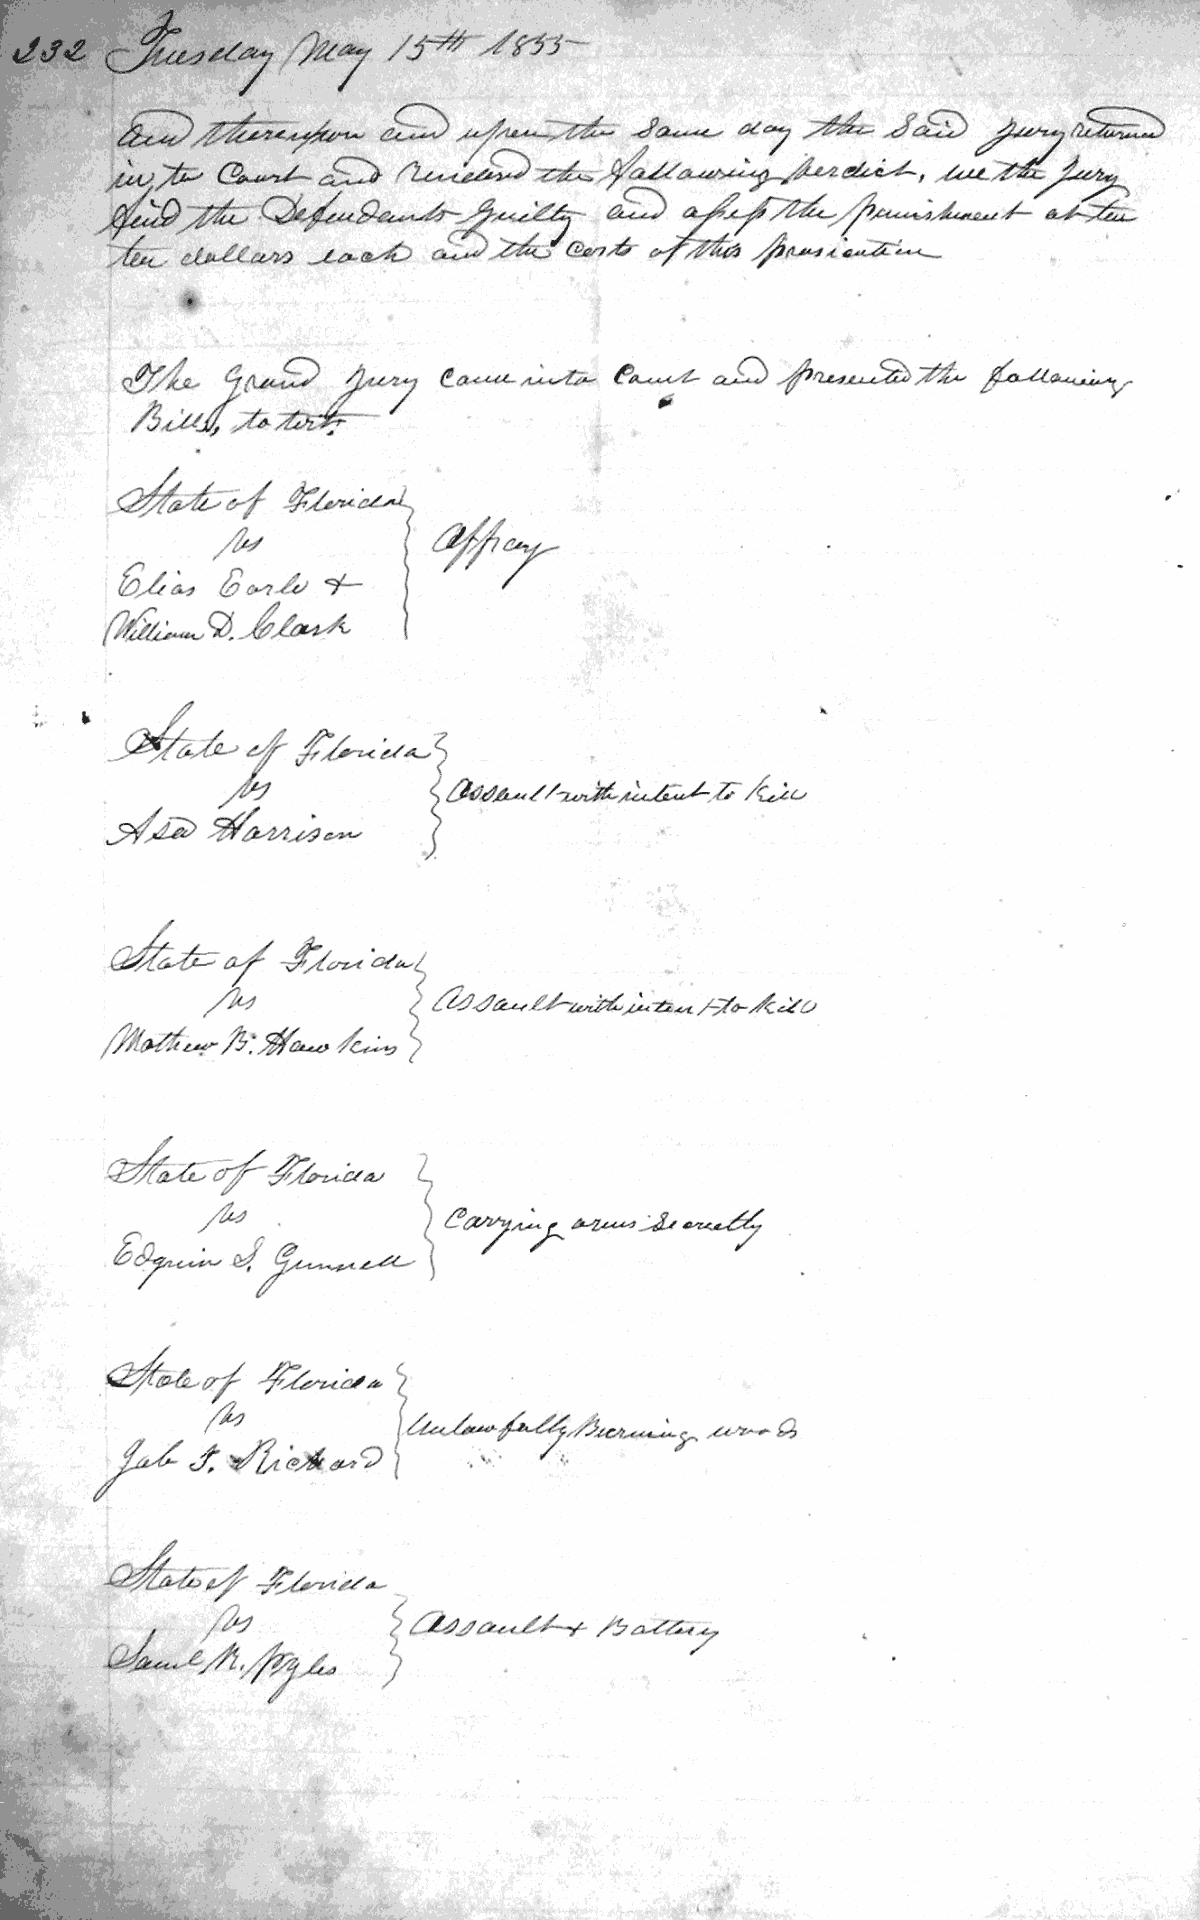 232 Tuesday May 15th 1855
and thereupon and upon the same day the Said Jury returned
in to Court and rendered the following verdict, we the Jury
find the Defendants guilty and assess the punishment at ten
ten dollars each and the costs of this prosicution
The Grand Jury came into Court and presented the following
Bills, to wit,
State of Florida
vs
Elias Earle +
William D. Clark
Affray
State of Florida
vs
Asa Harrison
Assault with intent to kill
State of Florida
vs
Mathew B. Hawkins
Assault with intent to kill
State of Florida
vs
S. Gunnell
Carrying arms Secretly
State of Florida
vs
F. Richard
Unlawfully Burning woods
State of Florida
vs
Saml R. Pyles
Assault + Battery